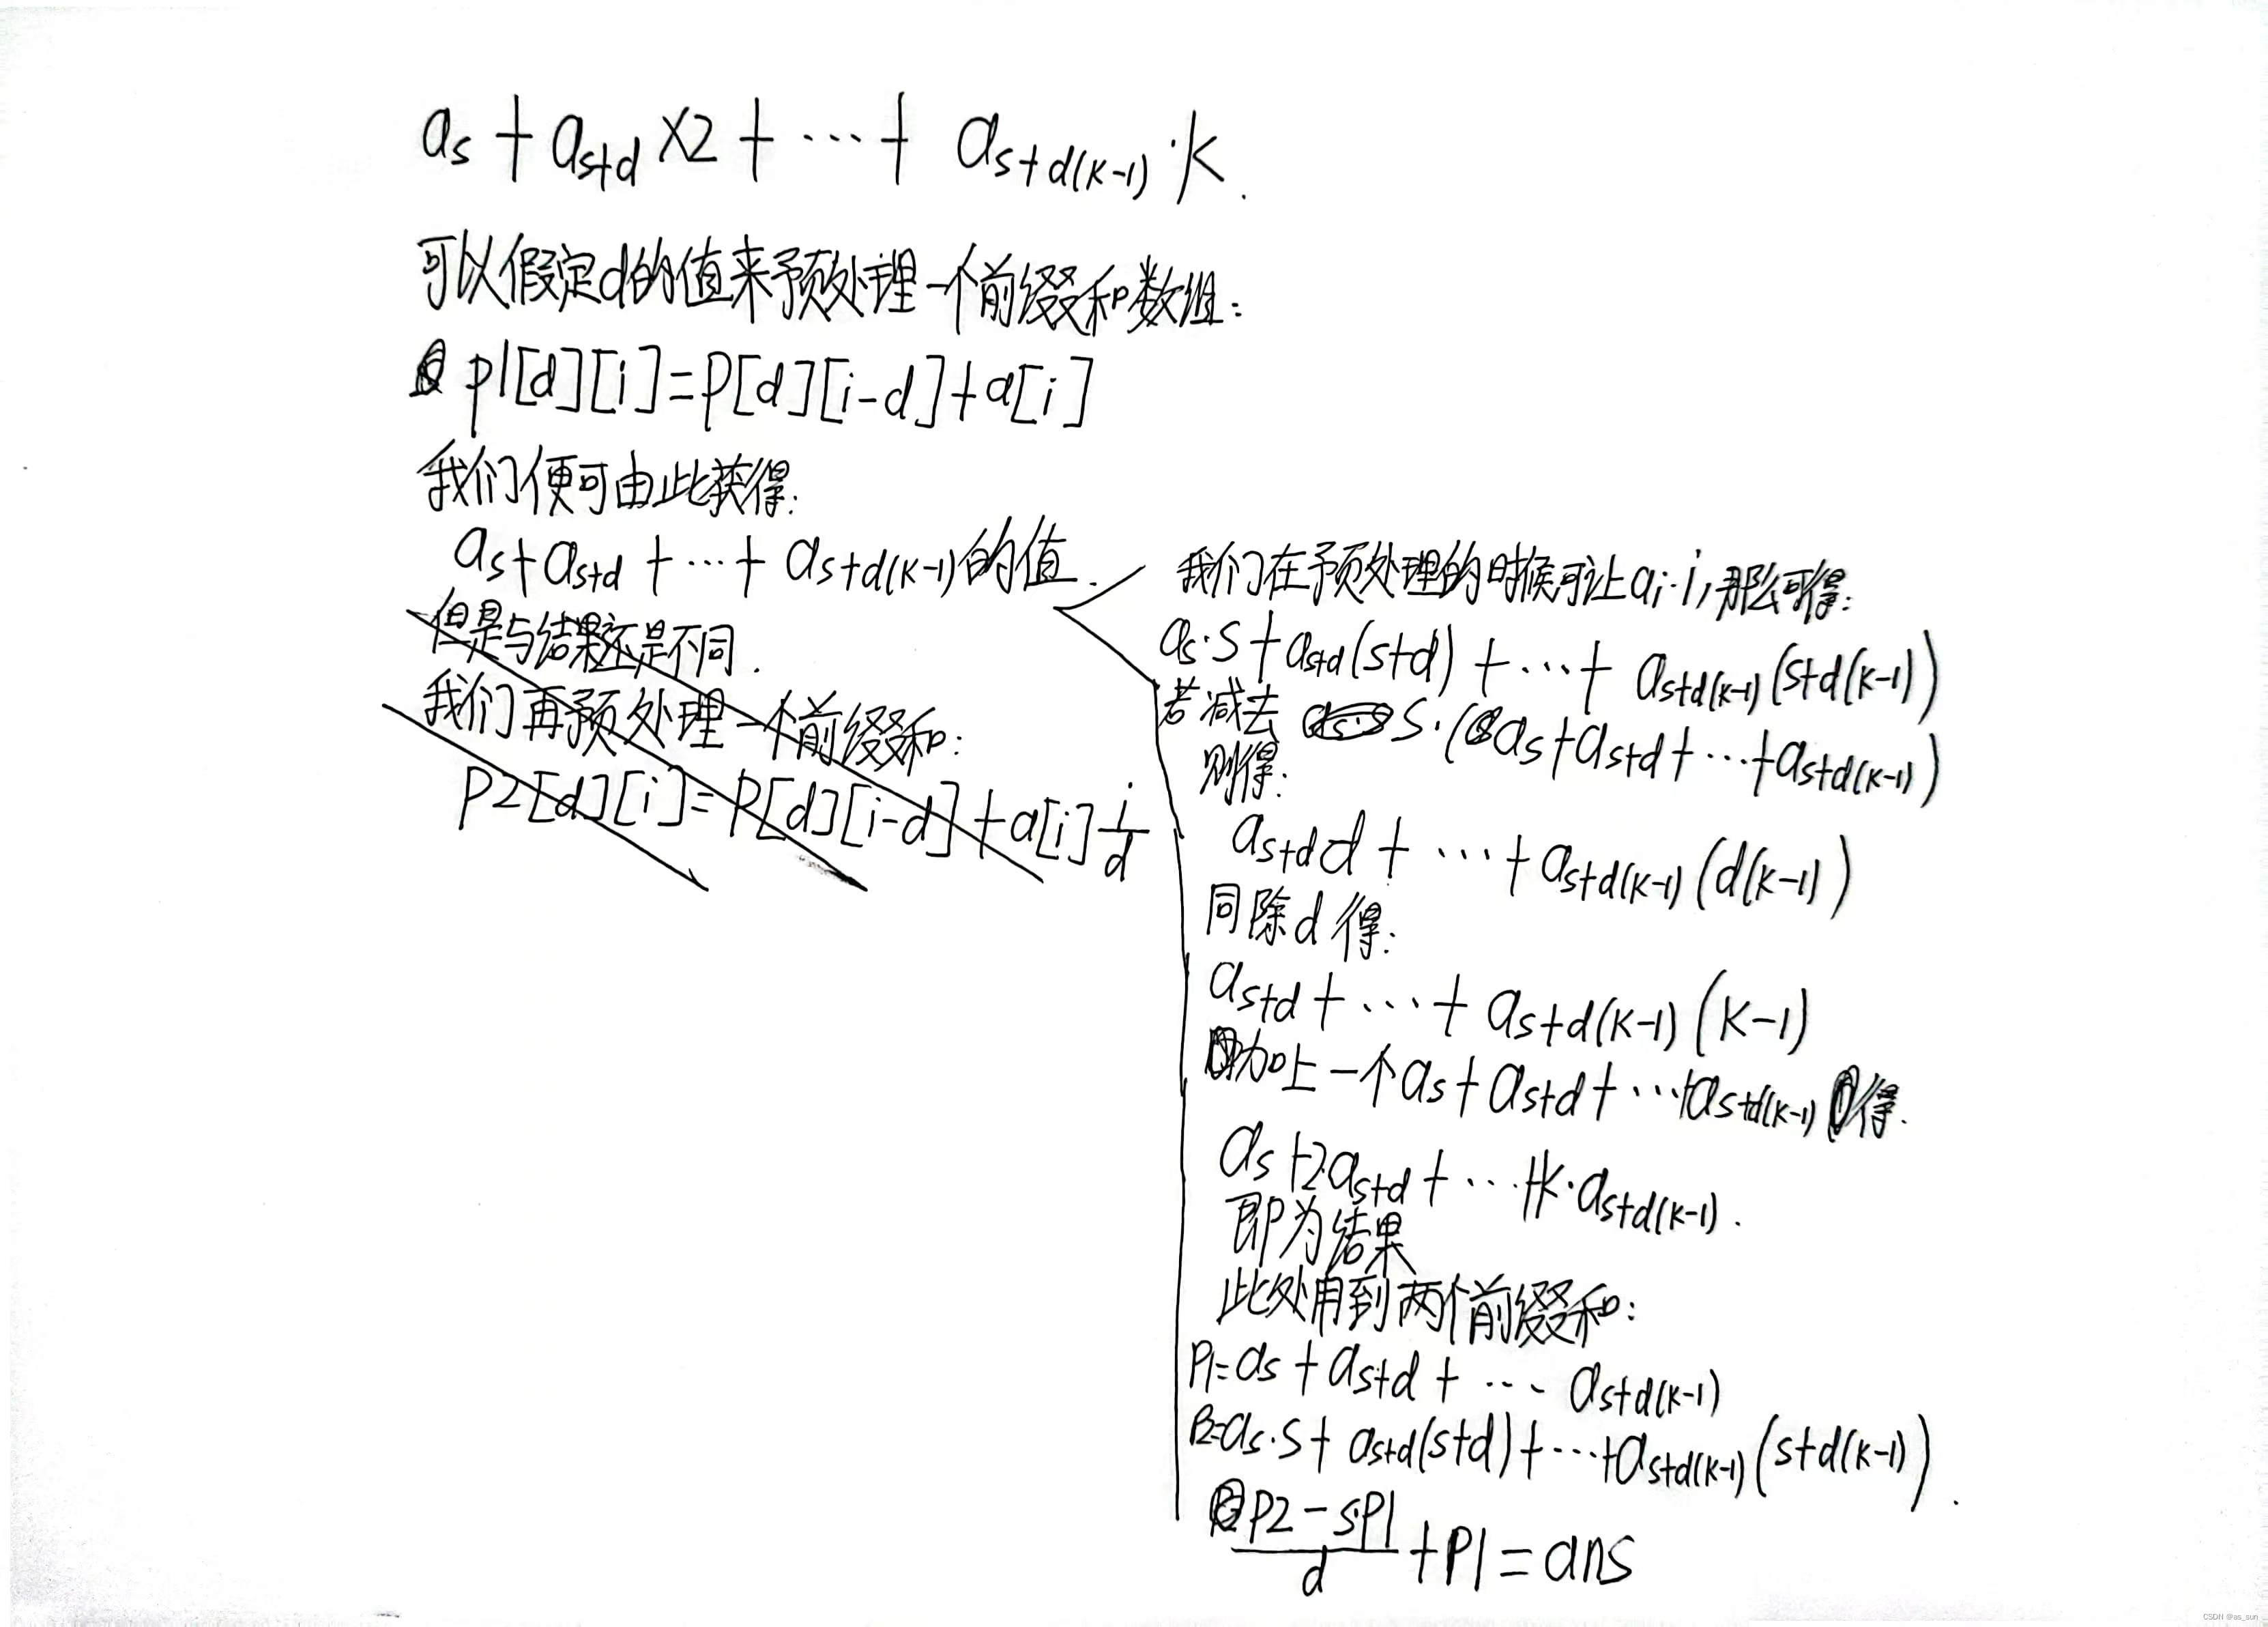 as + as+d ×2 + ⋯ + as+d(k-1)·k.
可以假定d的值来预处理一个前缀和数组：
p1[d][i]=p[d][i-d]+a[i]
我们便可由此获得：
as+as+d + ⋯ + as+d(k-1)的值.
但是与结果还是不同.
我们再预处理一个前缀和：
p2[d][i]=p[d][i-d]+a[i] i/d
我们在预处理的时候可让ai·i,那么可得：
as·s+as+d(s+d) + ⋯ + as+d(k-1)(s+d(k-1))
若减去 s·(as+as+d+⋯+as+d(k-1))
则得：
as+d d + ⋯ + as+d(k-1)(d(k-1))
同除d得：
as+d + ⋯ + as+d(k-1)(k-1)
加上一个as+as+d+⋯+as+d(k-1)得.
as+2as+d + ⋯ +k·as+d(k-1).
即为结果
此处用到两个前缀和：
P1=as + as+d + ⋯ as+d(k-1)
P2=as·s+ as+d(s+d)+⋯+as+d(k-1)(s+d(k-1)).
(P2-sP1)/d +P1=ans
CSDN @as_sun